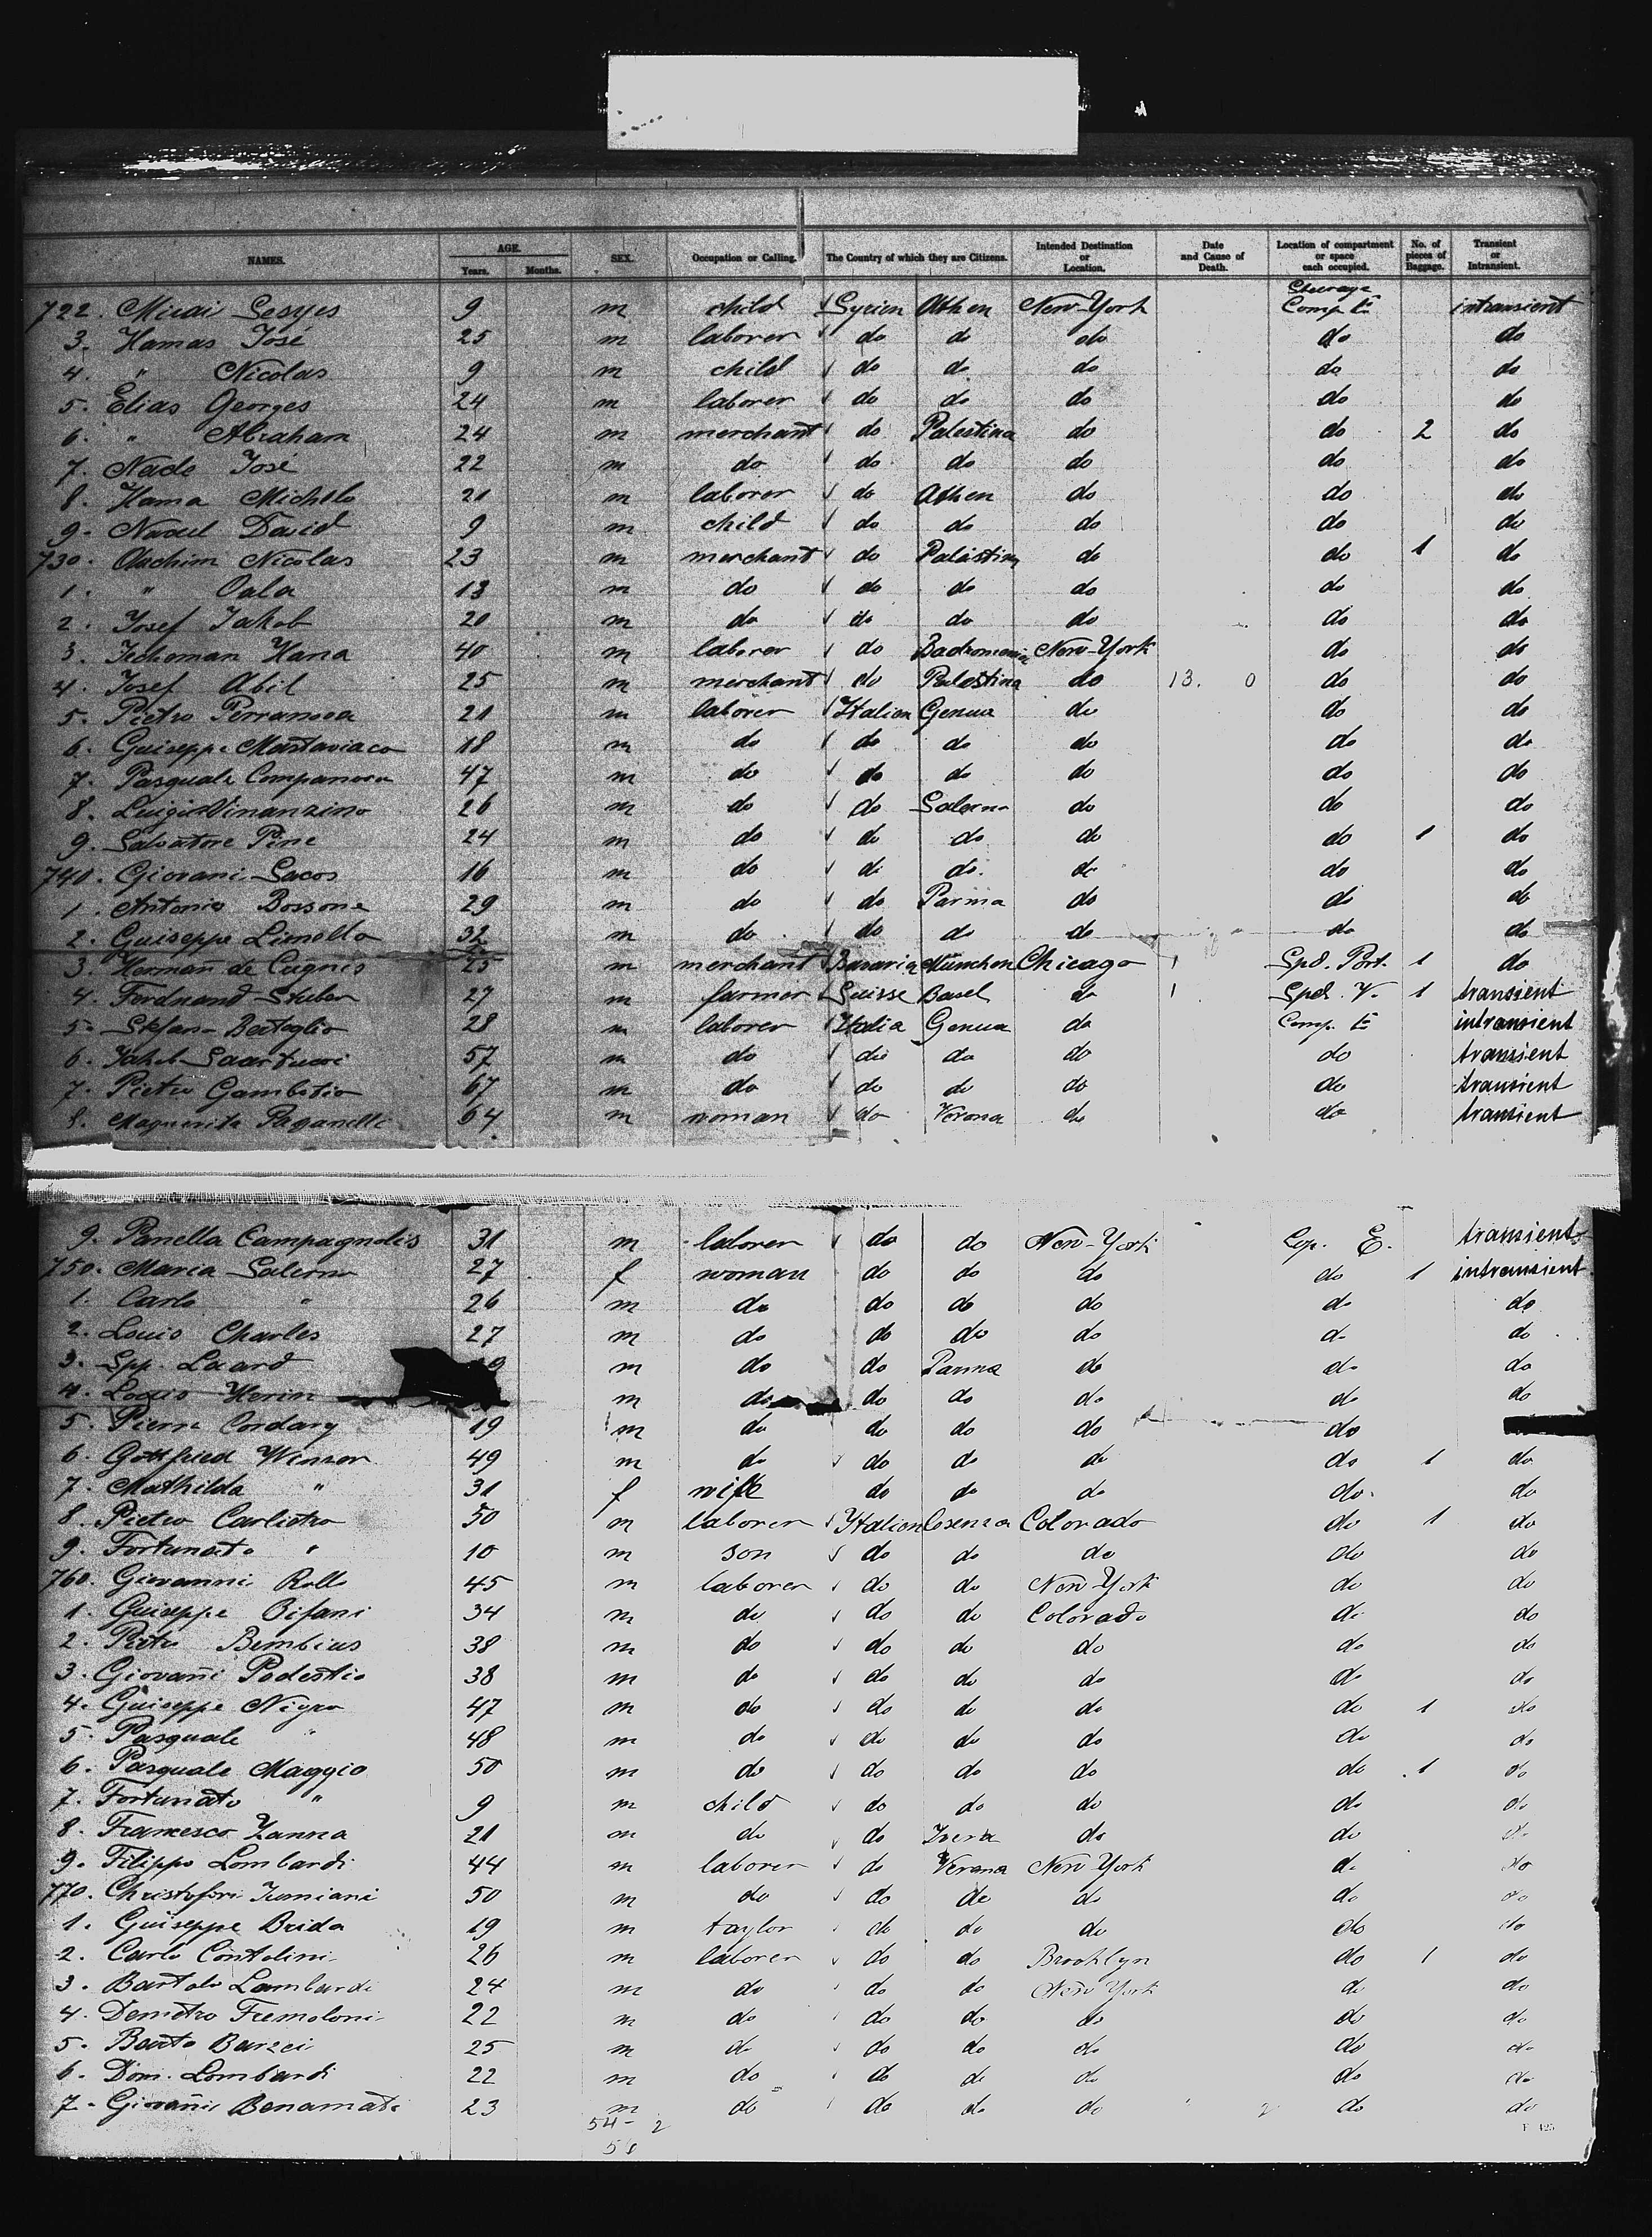 NAMES. AGE. Years. Months. SEX. Occupation or Calling. The Country of which they are Citizens. Intended Destination or Location. Date and Cause of Death. Location of compartment or space each occupied. No. of pieces of Baggage. Transient or Intransient.
722. Micai Sesyes 9 m child Syrien Athen New-York Steerage Comp. E intransient
3. Hamas José 25 m laborer do do do do do
4. " Nicolas 9 m child do do do do do
5. Elias Georges 24 m laborer do do do do do
6. " Abraham 24 m merchant do Palestina do do 2 do
7. Nade José 22 m do do do do do do
8. Hama Michele 21 m laborer do Athen do do do
9. David 9 m child do do do do do
730. Nicolas 23 m merchant do Palästina do do 1 do
1. " Oala 13 m do do do do do do
2. Yosef Jakob 20 m do do do do do do
3. Hana 40 m laborer do New-York do do
4. Josef Abil 25 m merchant do Palestina do 13. 0 do do
5. Pietro Perranova 21 m laborer Italien Genua do do do
6. Guiseppe 18 m do do do do do do
7. Pasquale Companova 47 m do do do do do do
8. Luigi Vinanzino 26 m do do Salerno do do do
9. Salvatore Pine 24 m do do do do do 1 do
740. Giovani Sacos 16 m do do do. do do do
1. Antonio Bossone 29 m do do Parma do do do
2. Guiseppe Limollo 32 m do do do do do do
3. Hermañ de Cugnis 25 m merchant Bavaria München Chicago 1 Spd. Port. 1 do
4. Ferdnand Stuber 27 m farmer Suisse Basel do 1 Spd. V. 1 transient
5. Stefano Bertoglio 28 m laborer Italia Genua do Comp. E intransient
6. Jakob 57 m do do do do do transient
7. Pietro Gambotio 67 m do do do do do transient
8. Maguerita Paganelli 64 m woman do Verona do do transient
9. Panella Campagnolis 31 m laborer do do New-York E. transient
750. Maria Salerno 27 f woman do do do do 1 intransient
1. Carlo " 26 m do do do do do do
2. Louis Charles 27 m do do do do do do
3. Spp. Laard 9 m do do Parma do do do
4. Louis Herin m do do do do do do
5. Pierre Cordary 19 m do do do do do
6. Gottfried Wenzer 49 m do do do do do 1 do
7. Mathilda " 31 f wife do do do do. do
8. Pietro Carlietro 50 m laborer Italien Cosenza Colorado do 1 do
9. Fortunato " 10 m son do do do do do
760. Giovanni Rollo 45 m laborer do do New-York do do
1. Guiseppe Bifani 34 m do do do Colorado do do
2. Pietro Bembius 38 m do do do do do do
3. Giovañi Podestio 38 m do do do do do do
4. Guiseppe Nigro 47 m do do do do do 1 do
5. Pasquale " 48 m do do do do do do
6. Pasquale Maggio 50 m do do do do do 1 do
7. Fortunato " 9 m child do do do do do
8. Francesco Zanna 21 m do do do do do
9. Filippo Lombardi 44 m laborer do Verona New York do do
770. Christofori Tumiani 50 m do do do do do do
1. Guiseppe Brida 19 m taylor do do do do do
2. Carlo Contolini 26 m laborer do do Brooklyn do 1 do
3. Bartolo Lambardi 24 m do do do New York do do
4. Demetro Tremoloni 22 m do do do do do do
5. Bento Barzei 25 m do do do do do do
6. Dom. Lombardi 22 m do do do do do do
7. Giovañi Benamati 23 m do do do do 2 do do
54 - 2